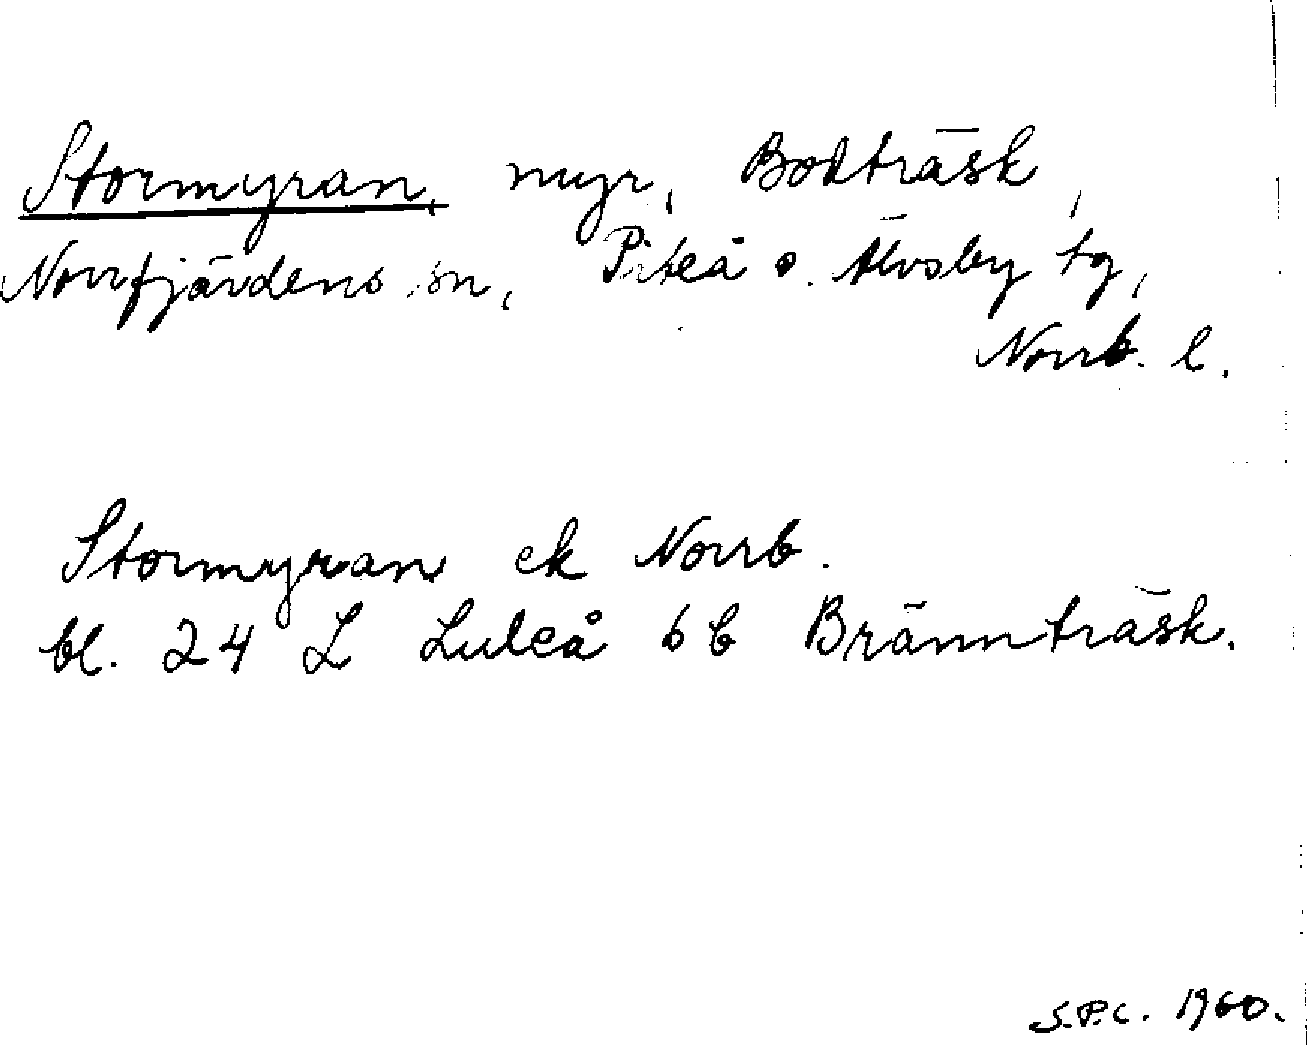 Stormyran, myr, Bodträsk,
Norrfjärdens sn, Piteå o. Älvsby tg,
Norrb. l.
Stormyran ek Norrb.
bl. 24 L Luleå 6b Brännträsk.
S.P.C. 1960.